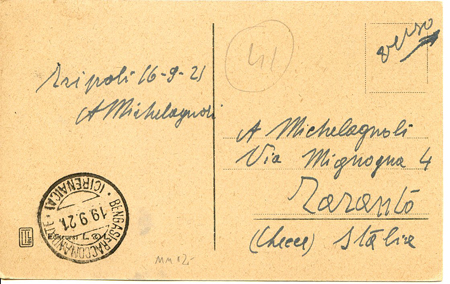 verso
41
Tripoli 16-9-21
A Michelagnoli
A Michelagnoli
Via Mignogna 4
Taranto
(Lecce) Italia
BENGASI-RACCOMANDATE
19.9.21
(CIRENAICA)